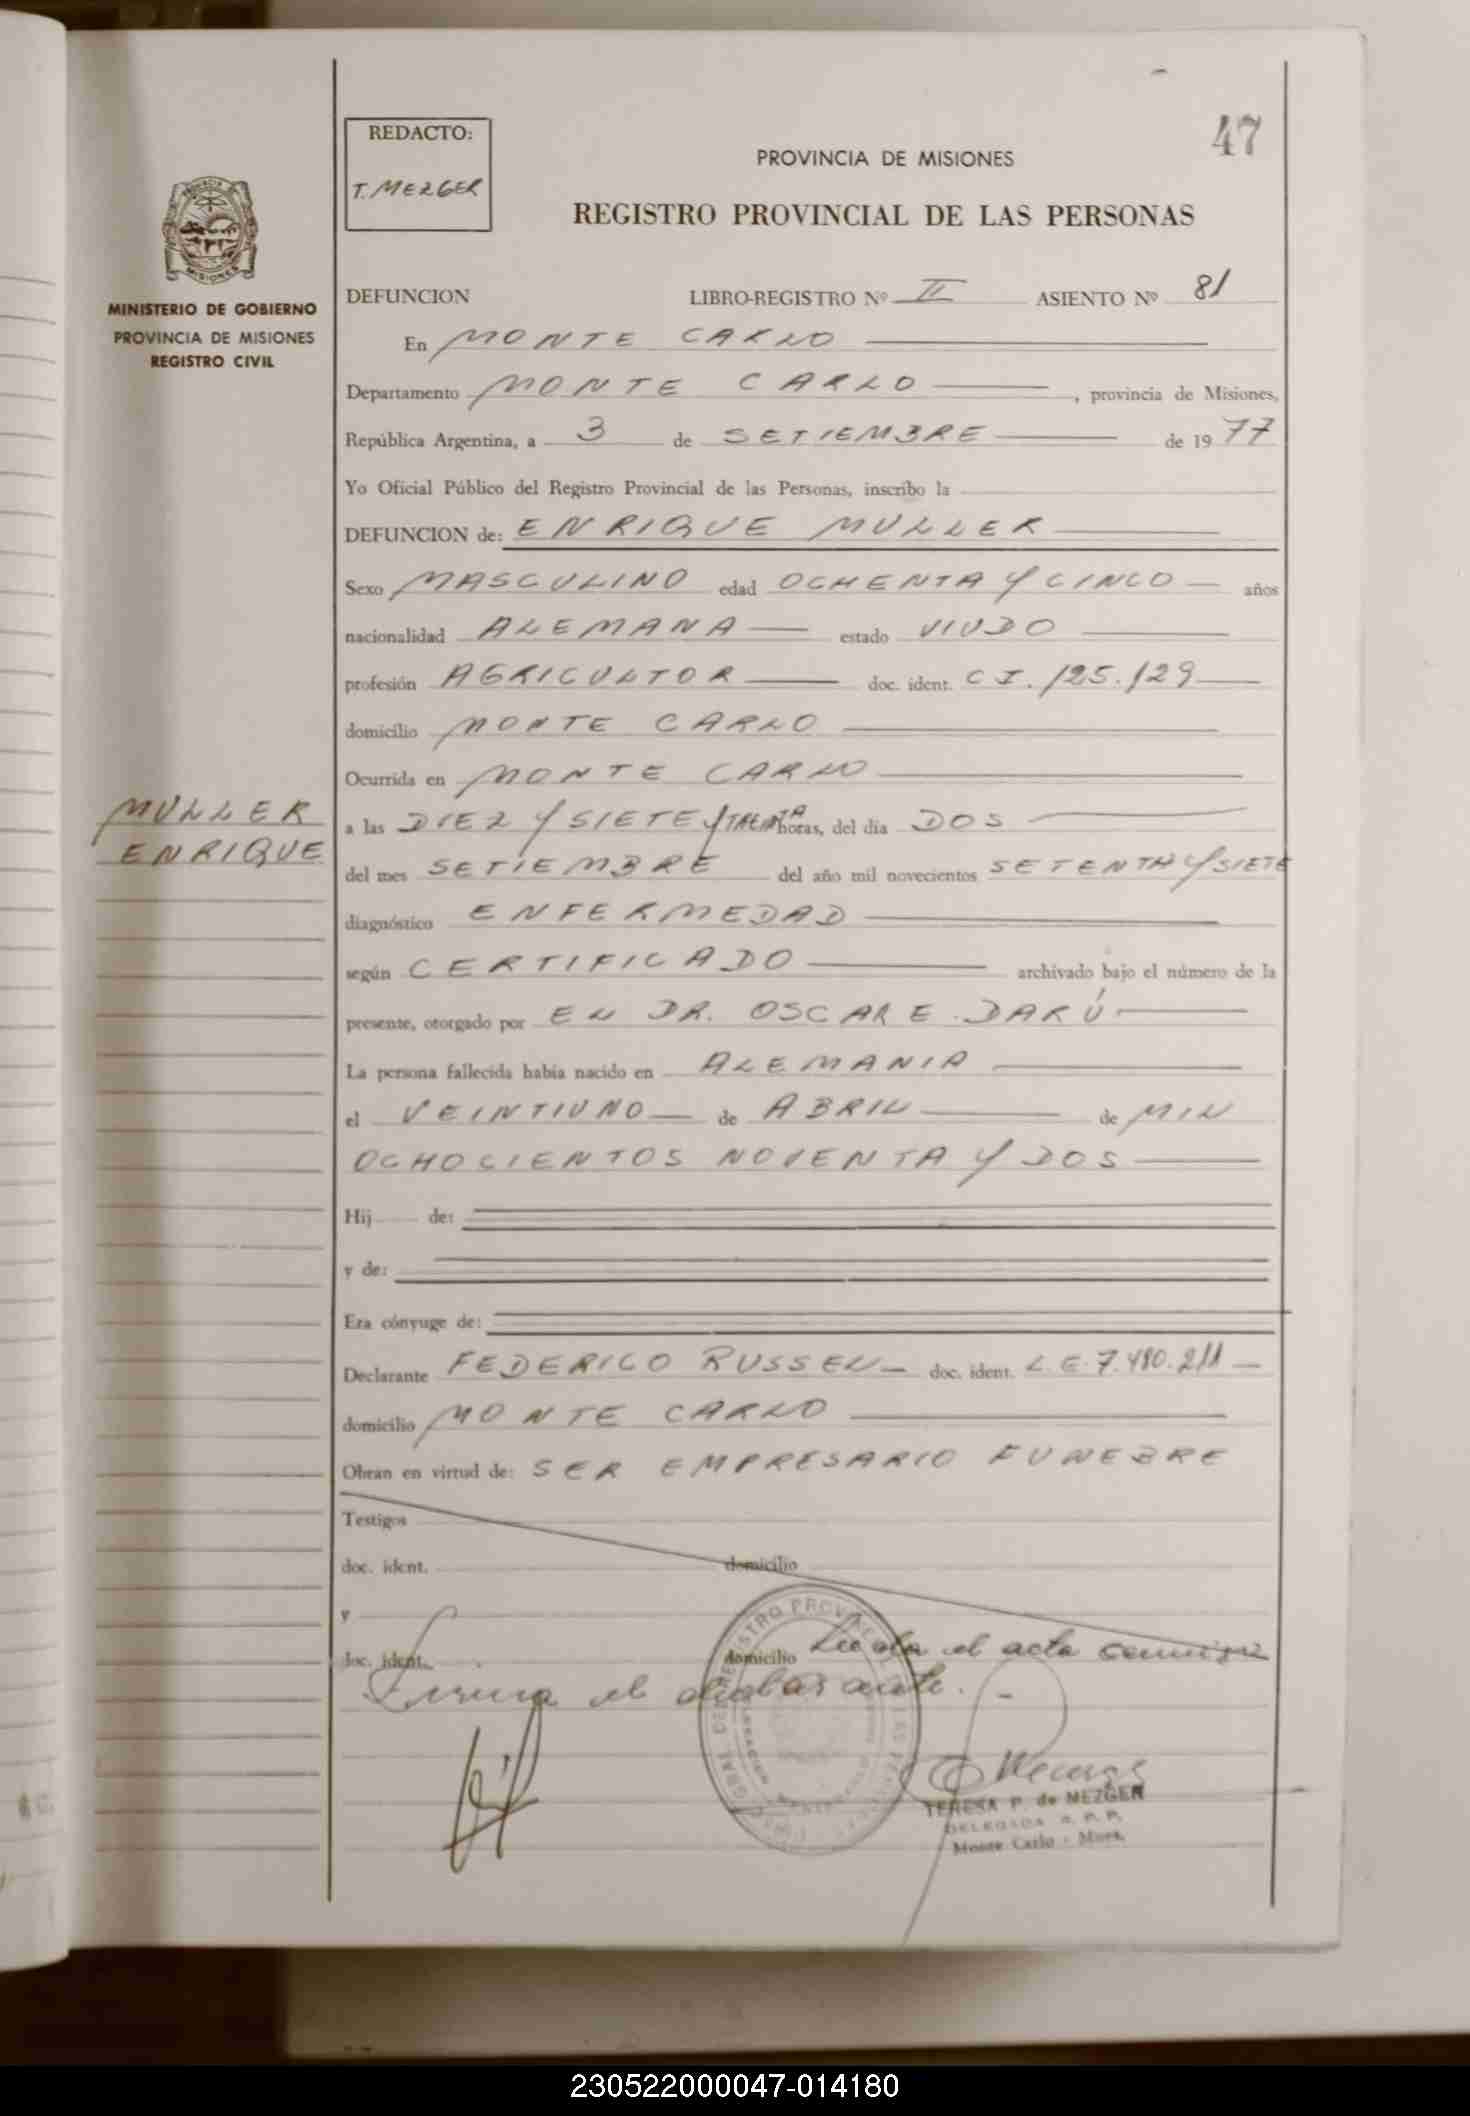 47
REDACTO:
T. MEZGER
PROVINCIA DE MISIONES
REGISTRO PROVINCIAL DE LAS PERSONAS
MISIONES
MINISTERIO DE GOBIERNO
PROVINCIA DE MISIONES
REGISTRO CIVIL
DEFUNCION LIBRO-REGISTRO Nº II ASIENTO Nº 81
En MONTE CARLO
Departamento MONTE CARLO, provincia de Misiones,
República Argentina, a 3 de SETIEMBRE de 1977
Yo Oficial Público del Registro Provincial de las Personas, inscribo la
DEFUNCION de: ENRIQUE MULLER
Sexo MASCULINO edad OCHENTA Y CINCO años
nacionalidad ALEMANA estado VIUDO
profesión AGRICULTOR doc. ident. C I. 125.129
domicilio MONTE CARLO
Ocurrida en MONTE CARLO
MULLER
ENRIQUE
a las DIEZ Y SIETE Y horas, del día DOS
del mes SETIEMBRE del año mil novecientos SETENTA Y SIETE
diagnóstico ENFERMEDAD
según CERTIFICADO archivado bajo el número de la
presente, otorgado por EL DR. OSCAR E. DARÚ
La persona fallecida había nacido en ALEMANIA
el VEINTIUNO de ABRIL de MIL
OCHOCIENTOS NOVENTA Y DOS
Hij de:
y de:
Era cónyuge de:
Declarante FEDERICO RUSSEL doc. ident. L.E. 7.480.211
domicilio MONTE CARLO
Obran en virtud de: SER EMPRESARIO FUNEBRE
Testigos
doc. ident. domicilio
y
doc. ident. domicilio Leída el acta
Firma el declarante.
TERESA P. de MEZGER
DELEGADA R. P. P.
Monte Carlo - Mnes.
230522000047-014180